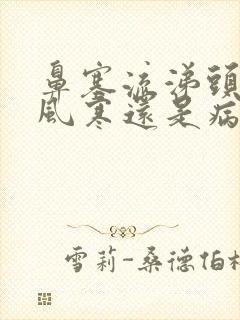 鼻塞流涕頭
風寒還是病
雪莉-桑德伯格